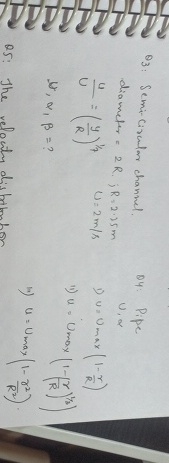 Q3: Semi-Circular channel.
diameter = 2R. ; R = 2.25m
u/U = (y/R)^1/7 U = 2m/s
α, β = ?
Q4: Pipe
U, α
i) u = Umax (1 - r/R)
ii) u = Umax (1 - r/R)^1/7
iii) u = Umax (1 - r²/R²).
Q5: The velocity distribution